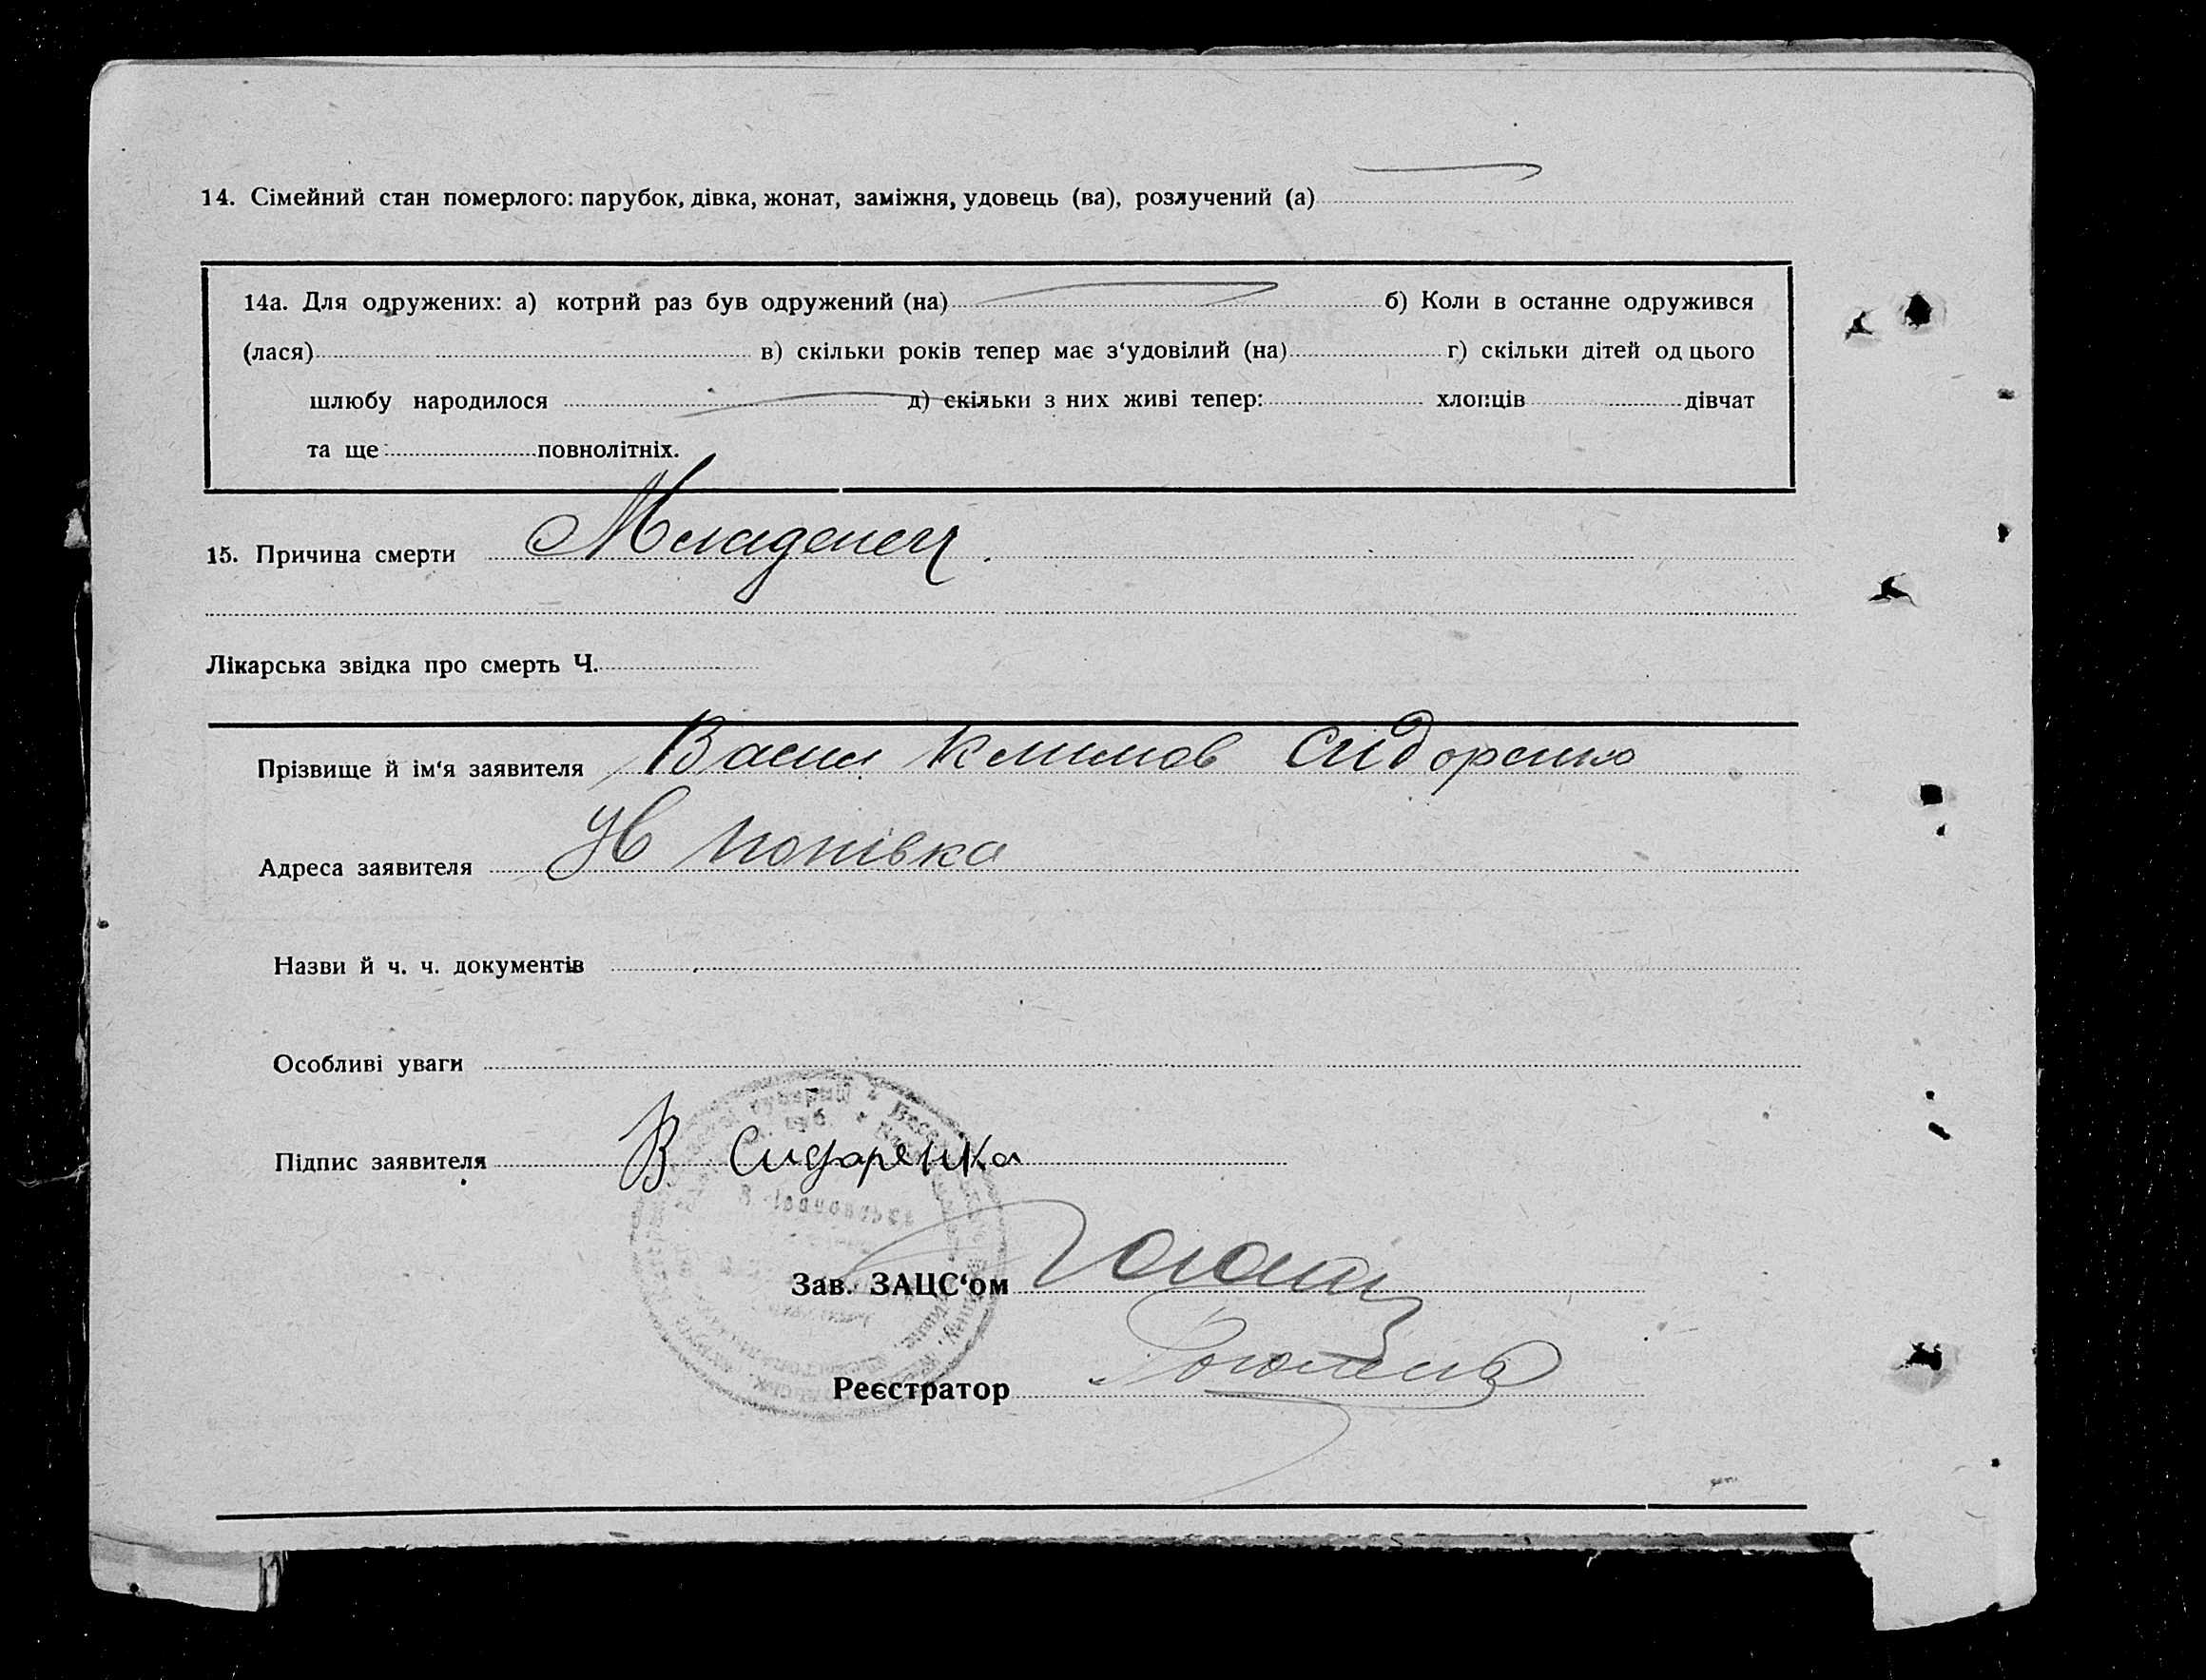 14. Сімейний стан померлого: парубок, дівка, жонат, заміжня, удовець (ва), розлучений (а)
14а. Для одружених: а) котрий раз був одружений (на) б) Коли в останнє одружився
(лася) в) скільки років тепер має з‘удовілий (на) г) скільки дітей од цього
шлюбу народилося д) скільки з них живі тепер: хлопців дівчат
та ще повнолітніх.
15. Причина смерти Младенец.
Лікарська звідка про смерть Ч.
Прізвище й ім‘я заявителя Васил Климов Сидоренко
Адреса заявителя Попівка
Назви й ч. ч. документів
Особливі уваги
Підпис заявителя В Сидаренка
Зав. ЗАЦС‘ом
Реєстратор